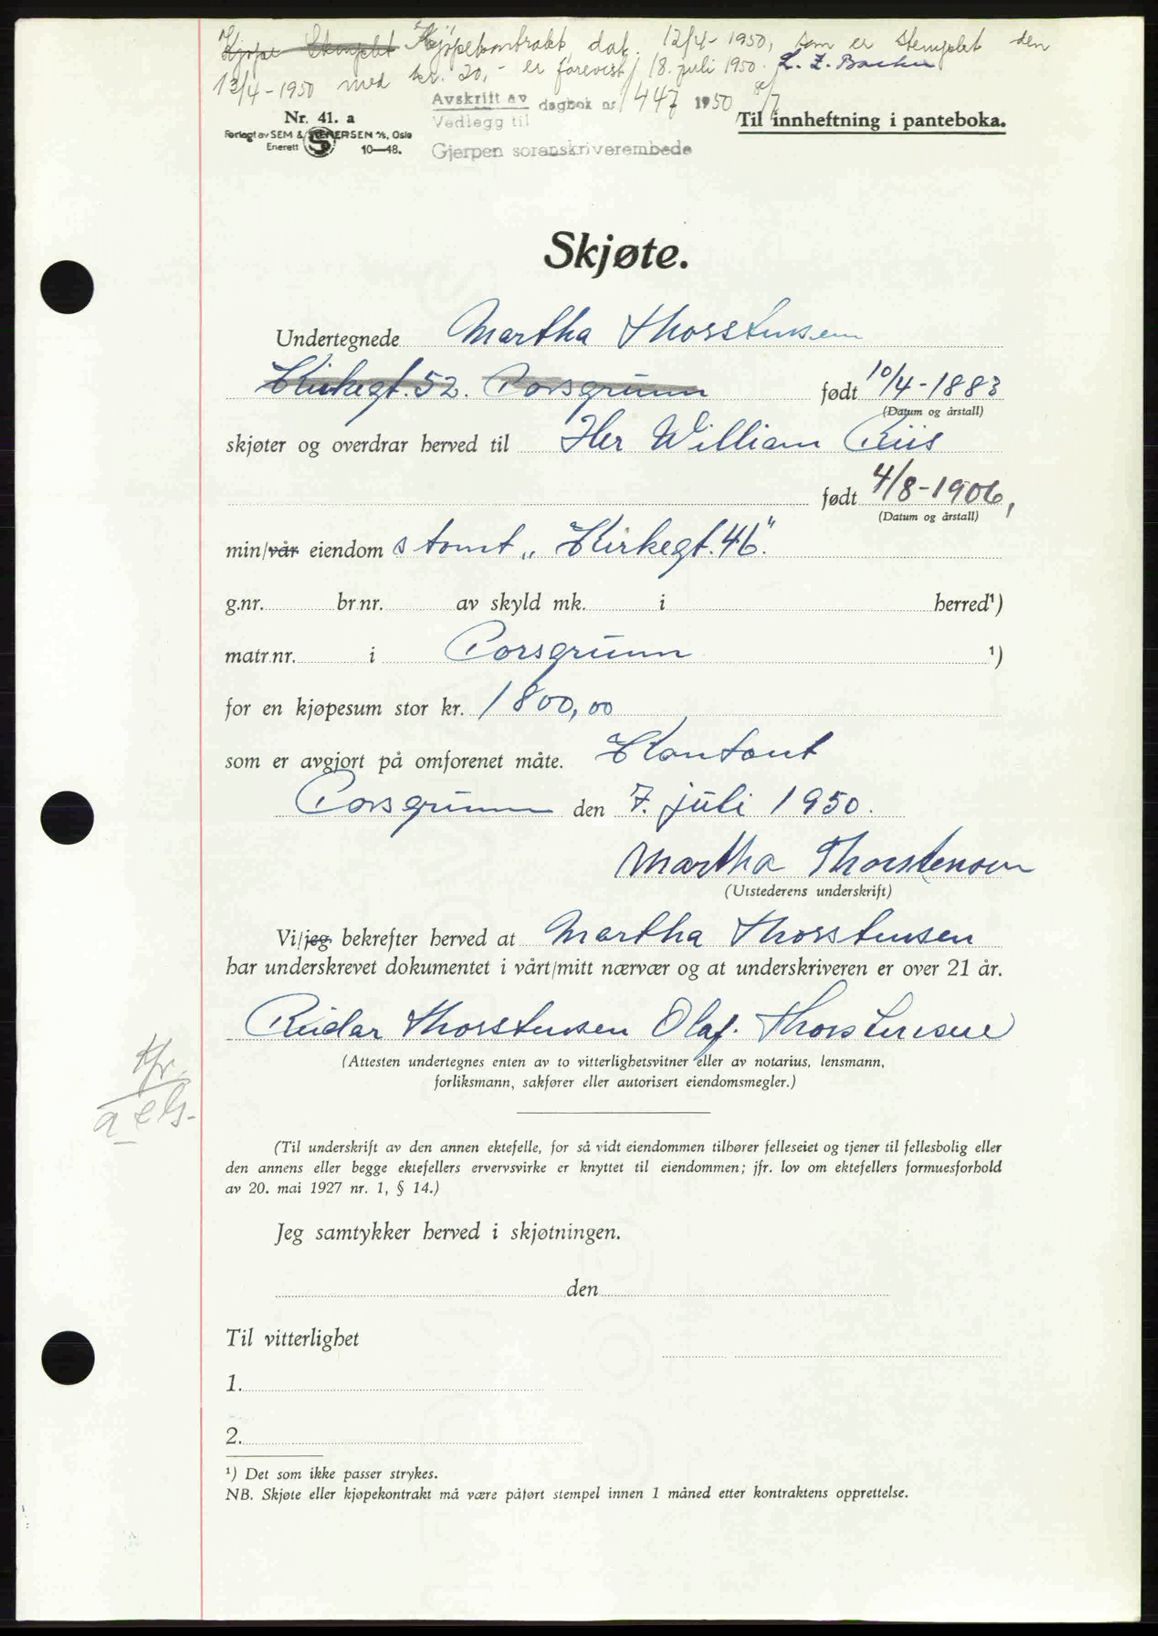 Kjøpekontrakt dat. 12/4-1950, som er stemplet den
12/4-1950 med kr. 20,- er forevist 18. juli 1950.
Avskrift av dagbok nr 1447 1950
Vedlegg til
Gjerpen sorenskriverembede
Nr. 41. a
Forlagt av SEM & STENERSEN A/S, Oslo
Enerett 10—48.
Til innheftning i panteboka.
Skjøte.
Undertegnede Martha Thorstensen
Kirkegt. 52. Porsgrunn født 10/4-1883
(Datum og årstall)
skjøter og overdrar herved til Her William Riis
født 4/8-1906,
(Datum og årstall)
min/vår eiendom s tomt „Kirkegt. 46".
g.nr. br.nr. av skyld mk. i herred¹)
matr.nr. i Porsgrunn ¹)
for en kjøpesum stor kr. 1800,00
som er avgjort på omforenet måte. Kontant
Porsgrunn den 7. juli 1950.
Martha Thorstensen
(Utstederens underskrift)
Vi/jeg bekrefter herved at Martha Thorstensen
har underskrevet dokumentet i vårt/mitt nærvær og at underskriveren er over 21 år.
Reidar Thorstensen Olaf. Thorstensen
(Attesten undertegnes enten av to vitterlighetsvitner eller av notarius, lensmann,
forliksmann, sakfører eller autorisert eiendomsmegler.)
(Til underskrift av den annen ektefelle, for så vidt eiendommen tilhører felleseiet og tjener til fellesbolig eller
den annens eller begge ektefellers ervervsvirke er knyttet til eiendommen; jfr. lov om ektefellers formuesforhold
av 20. mai 1927 nr. 1, § 14.)
Jeg samtykker herved i skjøtningen.
den
Til vitterlighet
1.
2.
¹) Det som ikke passer strykes.
NB. Skjøte eller kjøpekontrakt må være påført stempel innen 1 måned etter kontraktens opprettelse.